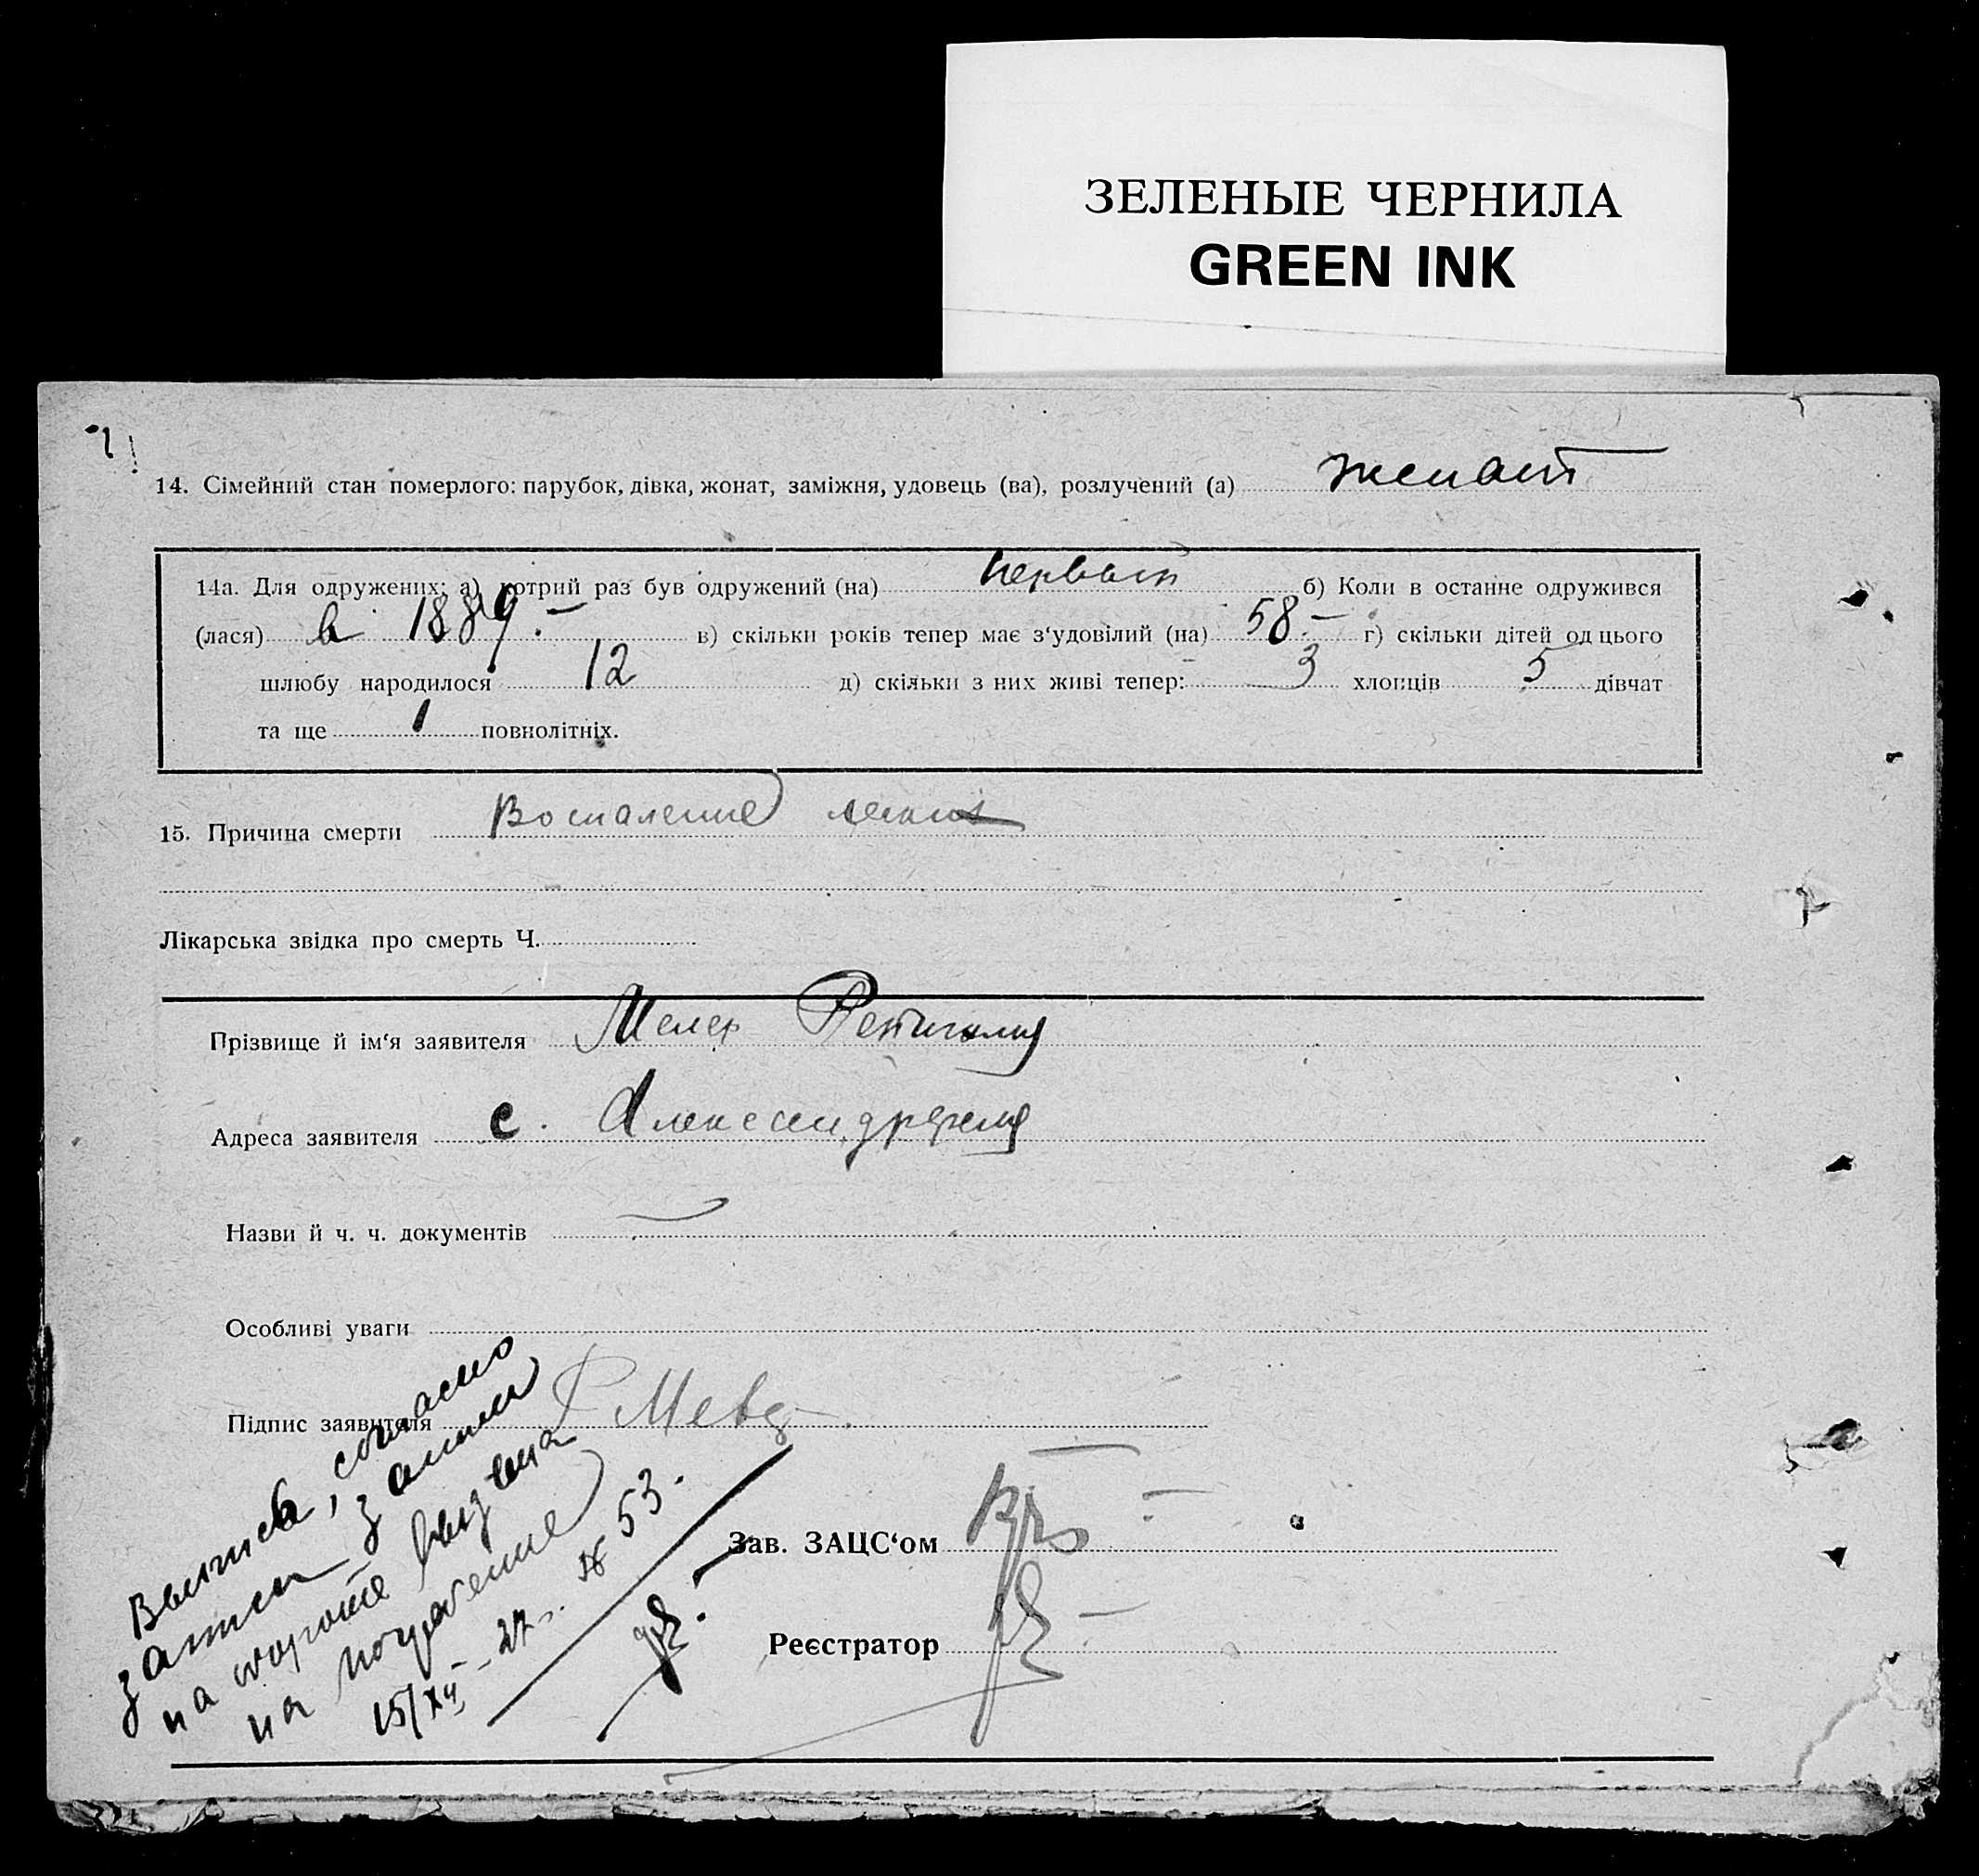 ЗЕЛЕНЫЕ ЧЕРНИЛА
GREEN INK
14. Сімейний стан померлого: парубок, дівка, жонат, заміжня, удовець (ва), розлучений (а) женат
14а. Для одружених: а) котрий раз був одружений (на) первый б) Коли в останне одружився
(лася) в 1889.- в) скільки років тепер має з‘удовілий (на) 58.- г) скільки дітей од цього
шлюбу народилося 12 д) скільки з них живі тепер: 3 хлопців 5 дівчат
та ще 1 повнолітніх.
15. Причина смерти Воспаление легких
Лікарська звідка про смерть Ч.
Прізвище й ім‘я заявителя
Адреса заявителя с.
Назви й ч. ч. документів
Особливі уваги
Підпис заявителя
Зав. ЗАЦС‘ом
Реєстратор
Выпись, согласно
записи
на стороне
на погребение
15/XII - 27 г. № 53.